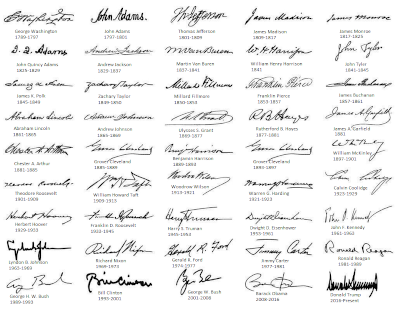 G Washington John Adams. Th Jefferson James Madison James Monroe
George Washington John Adams Thomas Jefferson James Madison James Monroe
1789-1797 1797-1801 1801-1809 1809-1817 1817-1825
J. Q. Adams Andrew Jackson M Van Buren W. H. Harrison John Tyler
John Quincy Adams Andrew Jackson Martin Van Buren William Henry Harrison John Tyler
1825-1829 1829-1837 1837-1841 1841 1841-1845
James K. Polk Zachary Taylor Millard Fillmore Franklin Pierce James Buchanan
James K. Polk Zachary Taylor Millard Fillmore Franklin Pierce James Buchanan
1845-1849 1849-1850 1850-1853 1853-1857 1857-1861
Abraham Lincoln Andrew Johnson U.S. Grant R B Hayes James A Garfield
Abraham Lincoln Andrew Johnson Ulysses S. Grant Rutherford B. Hayes James A. Garfield
1861-1865 1865-1869 1869-1877 1877-1881 1881
Chester A Arthur Grover Cleveland Benj Harrison Grover Cleveland
Chester A. Arthur Grover Cleveland Benjamin Harrison Grover Cleveland William McKinley
1881-1885 1885-1889 1889-1894 1893-1897 1897-1901
Theodore Roosevelt Wm H Taft Woodrow Wilson Warren G Harding Calvin Coolidge
Theodore Roosevelt William Howard Taft Woodrow Wilson Warren G. Harding Calvin Coolidge
1901-1909 1909-1913 1913-1921 1921-1923 1923-1929
Herbert Hoover Harry Truman Dwight D Eisenhower
Herbert Hoover Franklin D. Roosevelt Harry S. Truman Dwight D. Eisenhower John F. Kennedy
1929-1933 1933-1945 1945-1953 1953-1961 1961-1963
Richard Nixon Gerald R. Ford Jimmy Carter Ronald Reagan
Lyndon B. Johnson Richard Nixon Gerald R. Ford Jimmy Carter Ronald Reagan
1963-1969 1969-1974 1974-1977 1977-1981 1981-1989
Bill Clinton
George H. W. Bush Bill Clinton George W. Bush Barack Obama Donald Trump
1989-1993 1993-2001 2001-2008 2008-2016 2016-Present